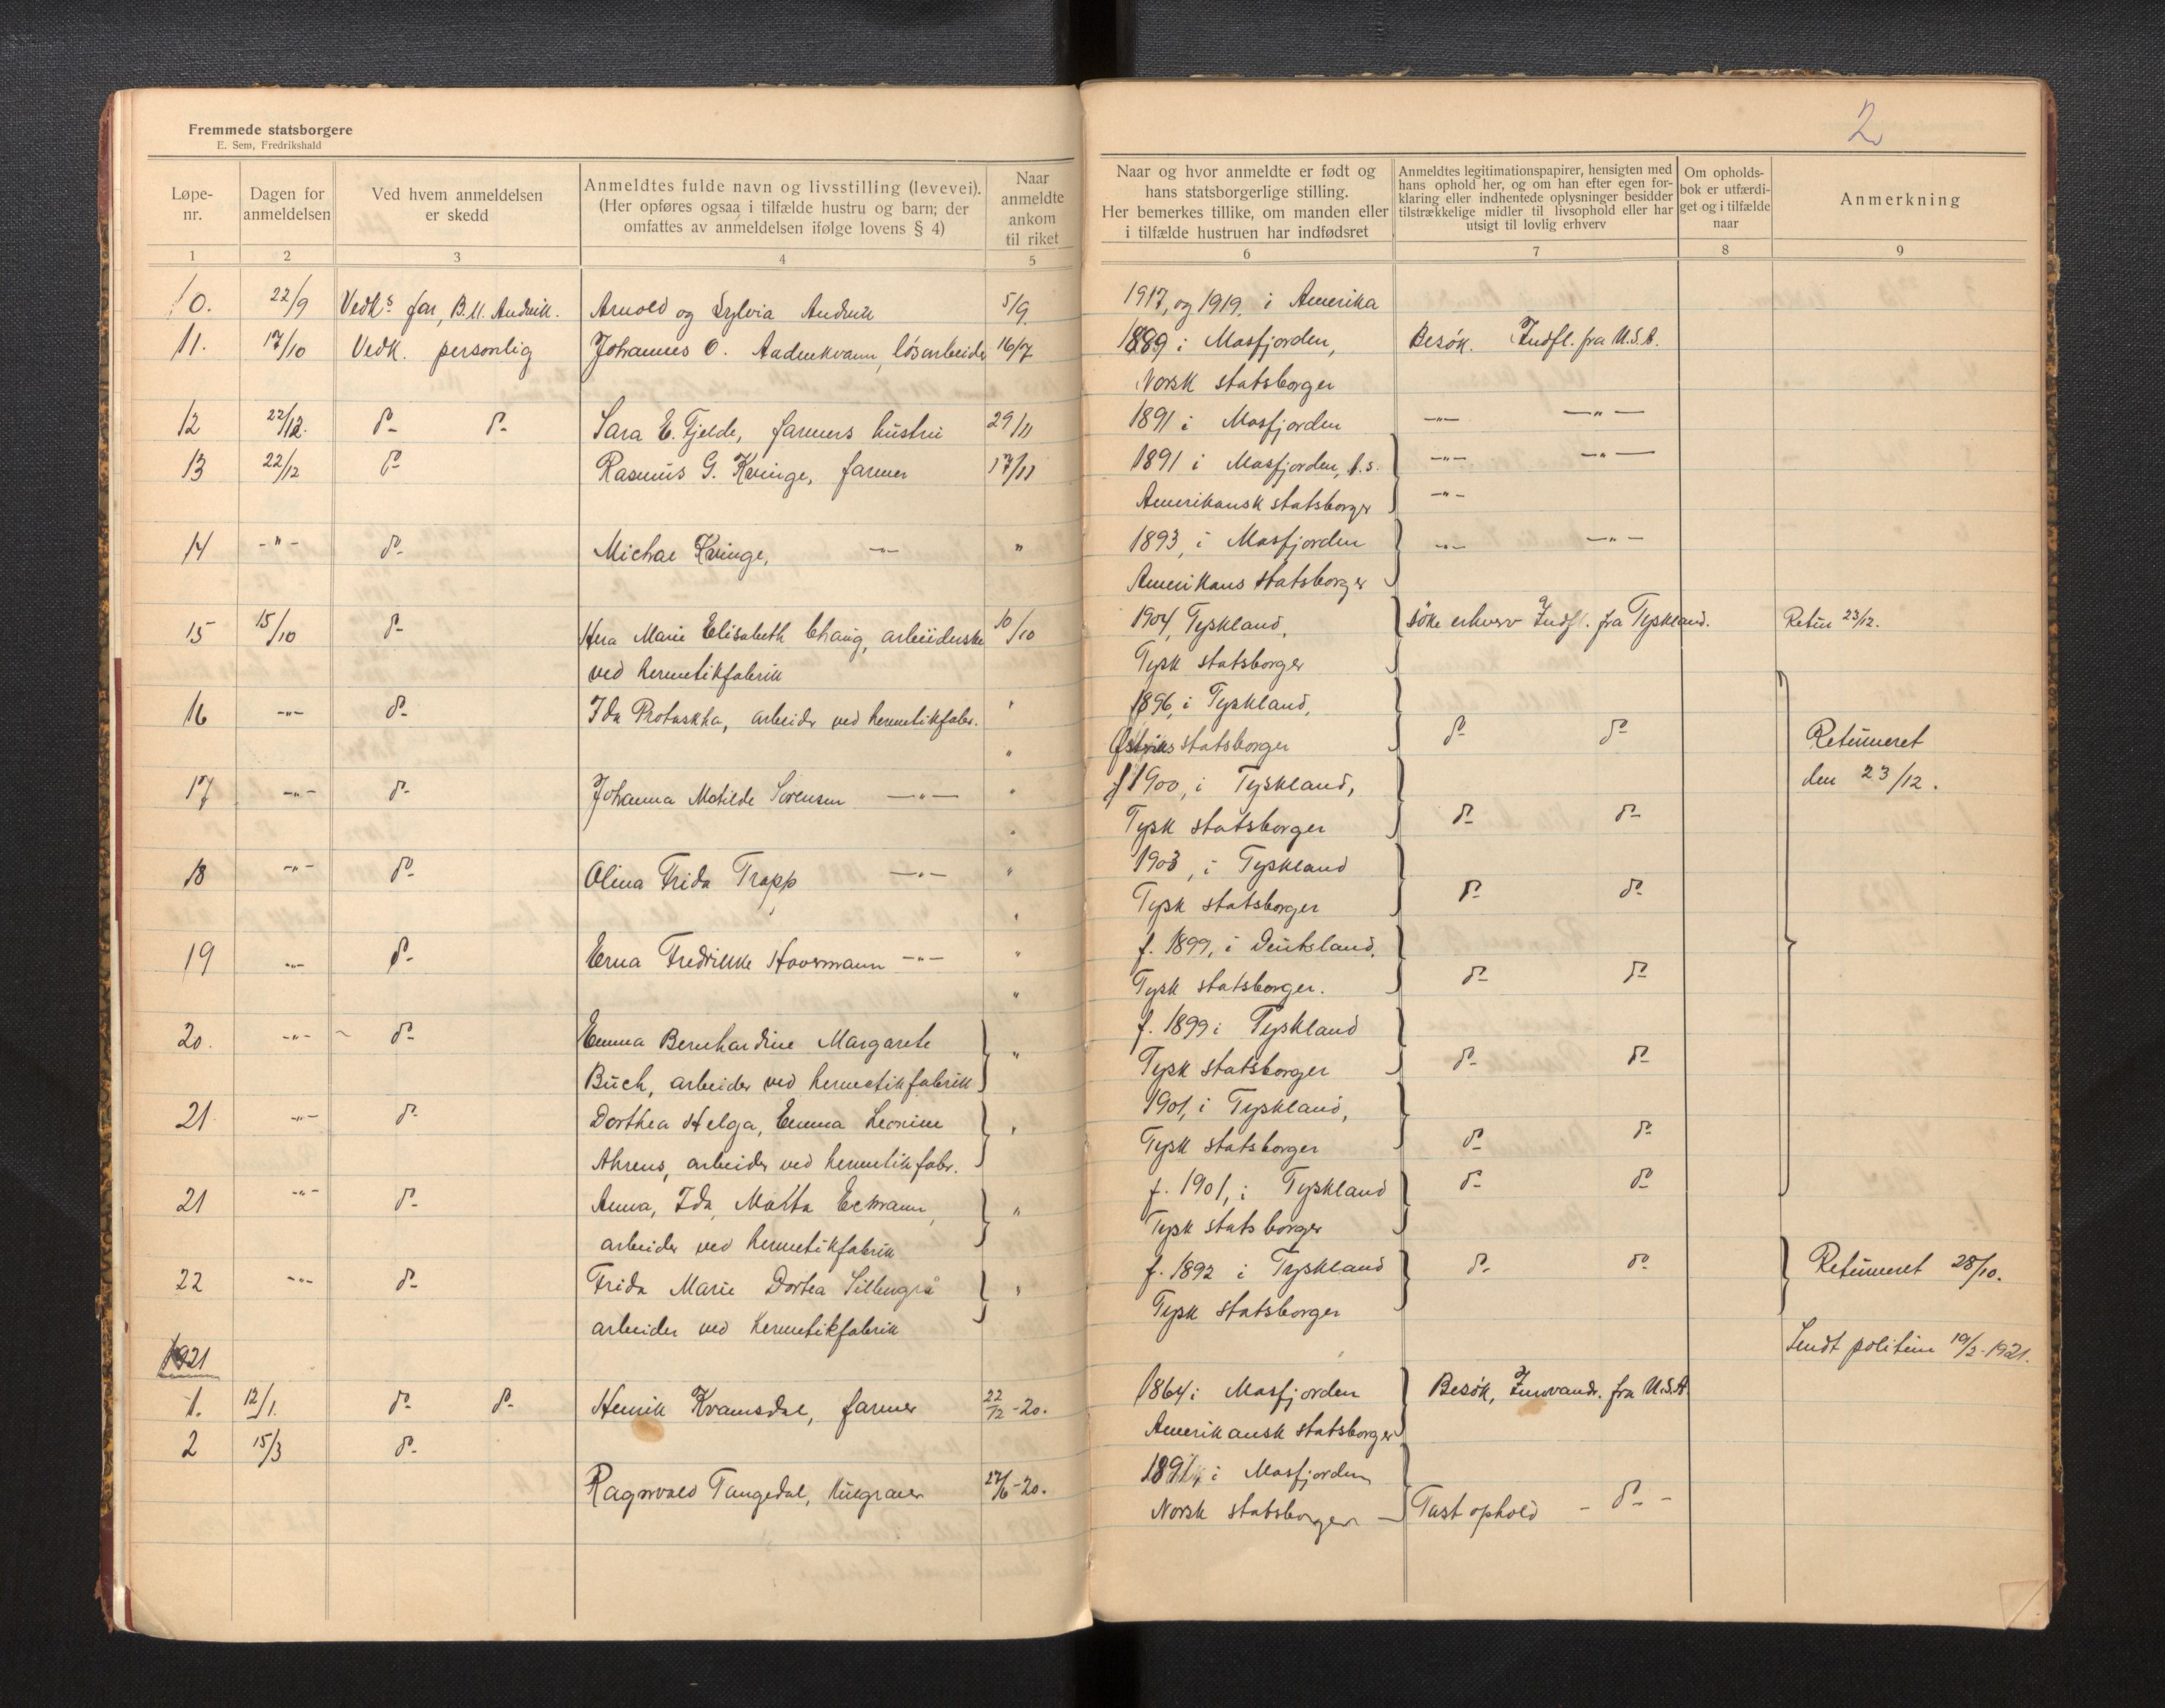 Fremmede statsborgere
E. Sem, Fredrikshald
2
Løpe-
nr.
Dagen for
anmeldelsen
Ved hvem anmeldelsen
er skedd
Anmeldtes fulde navn og livsstilling (levevei).
(Her opføres ogsaa i tilfælde hustru og barn; der
omfattes av anmeldelsen ifølge lovens § 4)
Naar
anmeldte
ankom
til riket
Naar og hvor anmeldte er født og
hans statsborgerlige stilling.
Her bemerkes tillike, om manden eller
i tilfælde hustruen har indfødsret
Anmeldtes legitimationspapirer, hensigten med
hans ophold her, og om han efter egen for-
klaring eller indhentede oplysninger besidder
tilstrækkelige midler til livsophold eller har
utsigt til lovlig erhverv
Om opholds-
bok er utfærdi-
get og i tilfælde
naar
Anmerkning
1 2 3 4 5 6 7 8 9
10. 22/9 Vedks far, B. M. Andvik. Arnold og Sylvia Andvik 5/9 1917, og 1919. i Amerika
11. 17/10 Vedk. personlig Johannes O. Andenkvam, løsarbeider 16/7 1889 i Masfjorden, Besøk. Indfl. fra U.S.A.
Norsk statsborger
12 22/12. do do Sara E. Fjelde, farmers hustru 29/11 1891 i Masfjorden -"- -"-
13 22/12 do Rasmus G. Kvinge, farmer 17/11 1891 i Masfjorden, -"- -"-
Amerikansk statsborger -"-
14 -"- do Michal Kvinge, -"- " 1893, i Masfjorden -"- -"-
Amerikans statsborger
15 15/10 do Marie Elisabeth arbeiderske 10/10 1904, Tyskland, søke erhverv Indfl. fra Tyskland. Retur 23/12.
ved hermetikfabrik Tysk statsborger
16 -"- do Ida Protuskha, arbeider ved hermetikfabr. " 1896, i Tyskland,
" Østriks statsborger do do Returneret
17 -"- do Johanna Matilde Sørensen -"- " 1900, i Tyskland, den 23/12.
" Tysk statsborger do do
18 -"- do Olina Frida Trapp -"- " 1903, i Tyskland
" Tysk statsborger do do
19 -"- do Erna Fredrikke Havermann -"- " f. 1899, i Deutsland,
" Tysk statsborger. do do
20. -"- do Emma Bernhardine Margarete " f. 1899 i Tyskland
Buch, arbeider ved hermetikfabrik Tysk statsborger do do
21 -"- do Dorthea Helga, Emma Leonine " 1901, i Tyskland,
Ahrens, arbeider ved hermetikfabr. Tysk statsborger do do
21 -"- do Anna, Ida, Marta Eckmann, " f. 1901, i Tyskland do do
arbeider ved hermetikfabrik Tysk statsborger
22 -"- do Frida Marie Dortea " f. 1892 i Tyskland do do Returneret 28/10.
arbeider ved hermetikfabrik Tysk statsborger
1921 Sendt politiem 19/2-1921.
1. 12/1. do do Henrik Kvamsdal, farmer 22/12-20. 1864 i Masfjorden Besøk, Innvandr. fra U.S.A.
Amerikansk statsborger
2 15/3 do 1891, i Masfjorden
Ragnvald Tangedal, 27/6-20. Norsk statsborger Fast ophold - do -